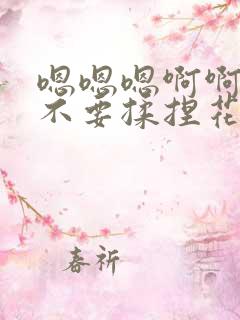 嗯嗯嗯啊啊
不要揉捏花
春祈